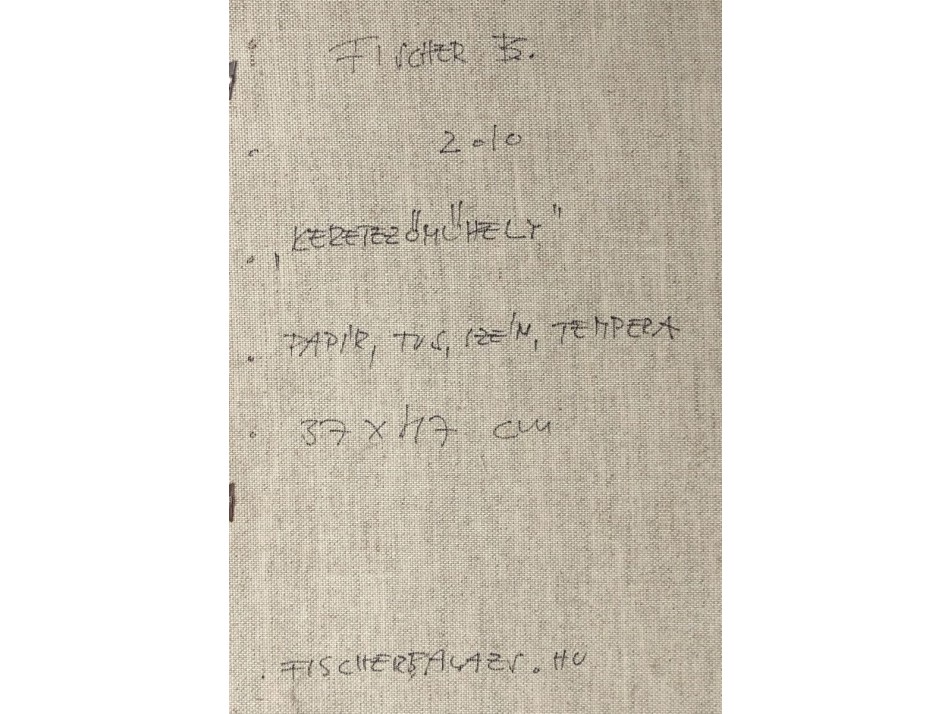 FISCHER B.
2010
„KERETEZŐMŰHELY"
PAPÍR, TUS, SZÉN, TEMPERA
37 X 47 cm
FISCHERBALAZS.HU